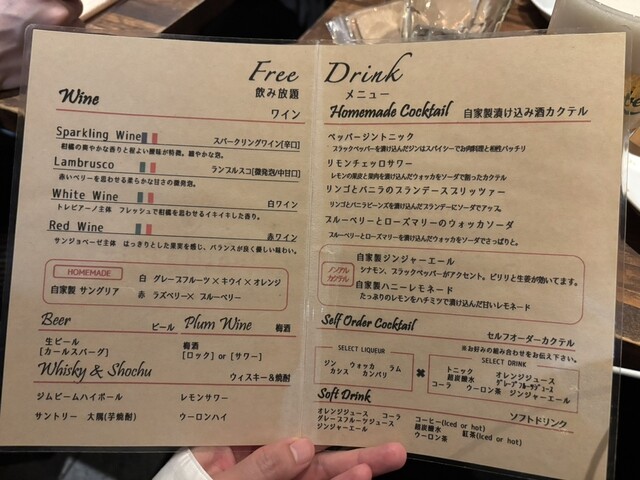 Free Drink
飲み放題 メニュー
Wine
ワイン
Sparkling Wine スパークリングワイン[辛口]
柑橘の爽やかな香りと程よい酸味が特徴。細やかな泡。
Lambrusco ランブルスコ[微発泡/中甘口]
赤いベリーを思わせる柔らかな甘さの微発泡。
White Wine 白ワイン
トレビアーノ主体 フレッシュで柑橘を思わせるイキイキした香り。
Red Wine 赤ワイン
サンジョベーゼ主体 はっきりとした果実を感じ、バランスが良く優しい味わい。
HOMEMADE
自家製 サングリア
白 グレープフルーツ × キウイ × オレンジ
赤 ラズベリー × ブルーベリー
Beer ビール
生ビール
[カールスバーグ]
Plum Wine 梅酒
梅酒
[ロック] or [サワー]
Whisky & Shochu ウィスキー&焼酎
ジムビームハイボール レモンサワー
サントリー 大隅(芋焼酎) ウーロンハイ
Homemade Cocktail 自家製漬け込み酒カクテル
ペッパージントニック
ブラックペッパーを漬け込んだジンはスパイシーでお肉料理と相性バッチリ
リモンチェッロサワー
レモンの果皮と果肉を漬け込んだウォッカをソーダで割ったカクテル
リンゴとバニラのブランデースプリッツァー
リンゴとバニラビーンズを漬け込んだブランデーにソーダでアップ。
ブルーベリーとローズマリーのウォッカソーダ
ブルーベリーとローズマリーを漬け込んだウォッカをソーダでさっぱりと。
ノンアル
カクテル
自家製ジンジャーエール
シナモン、ブラックペッパーがアクセント。ピリリと生姜が効いてます。
自家製ハニーレモネード
たっぷりのレモンをハチミツで漬け込んだ甘いレモネード
Self Order Cocktail セルフオーダーカクテル
※お好みの組み合わせをお伝え下さい。
SELECT LIQUEUR
ジン ウォッカ ラム
カシス カンパリ
×
SELECT DRINK
トニック オレンジジュース
超炭酸水 グレープフルーツジュース
コーラ ウーロン茶 ジンジャーエール
Soft Drink ソフトドリンク
オレンジジュース コーラ
グレープフルーツジュース
ジンジャーエール
コーヒー(Iced or hot)
超炭酸水 紅茶(Iced or hot)
ウーロン茶